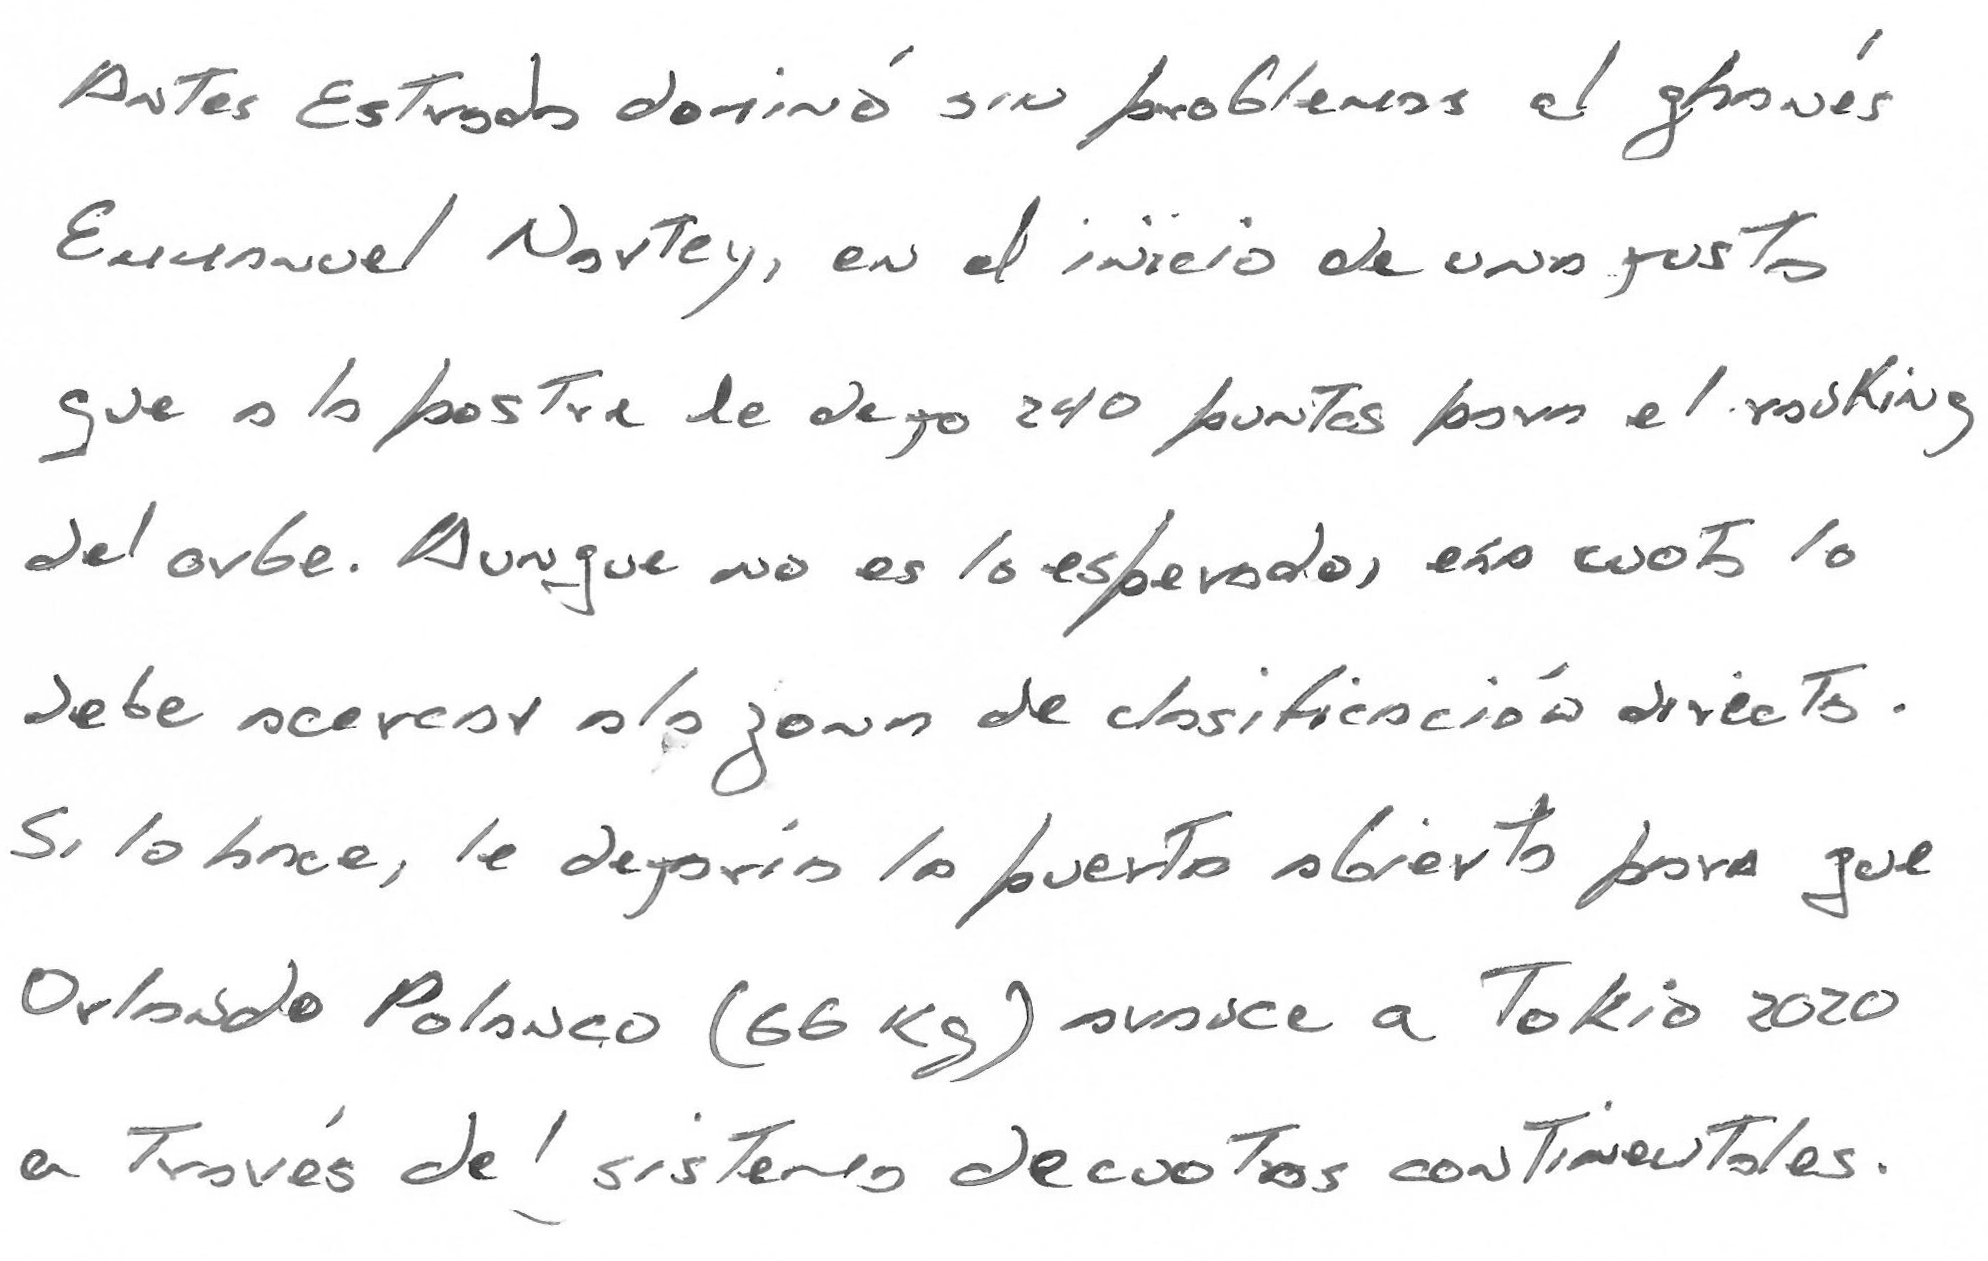 Antes Estrada dominó sin problemas al ghanés
Emmanuel Nartey, en el inicio de una justa
que a la postre le dejo 240 puntos para el ranking
del orbe. Aunque no es lo esperado, esa cuota lo
debe acercar a la zona de clasificación directa.
Si lo hace, le dejaría la puerta abierta para que
Orlando Polanco (66 Kg) avance a Tokio 2020
a través del sistema de cuotas continentales.